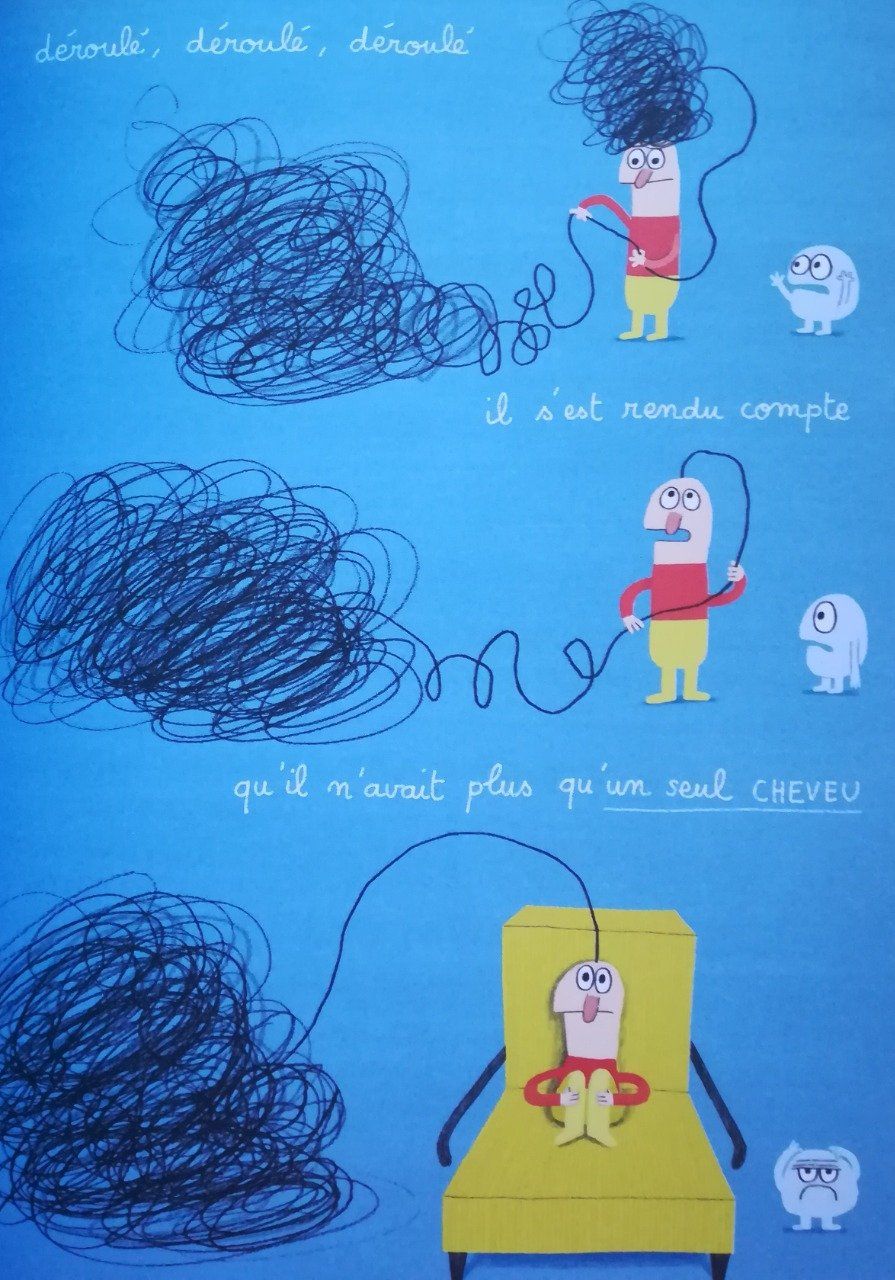 déroulé, déroulé, déroulé
il s'est rendu compte
qu'il n'avait plus qu'un seul CHEVEU